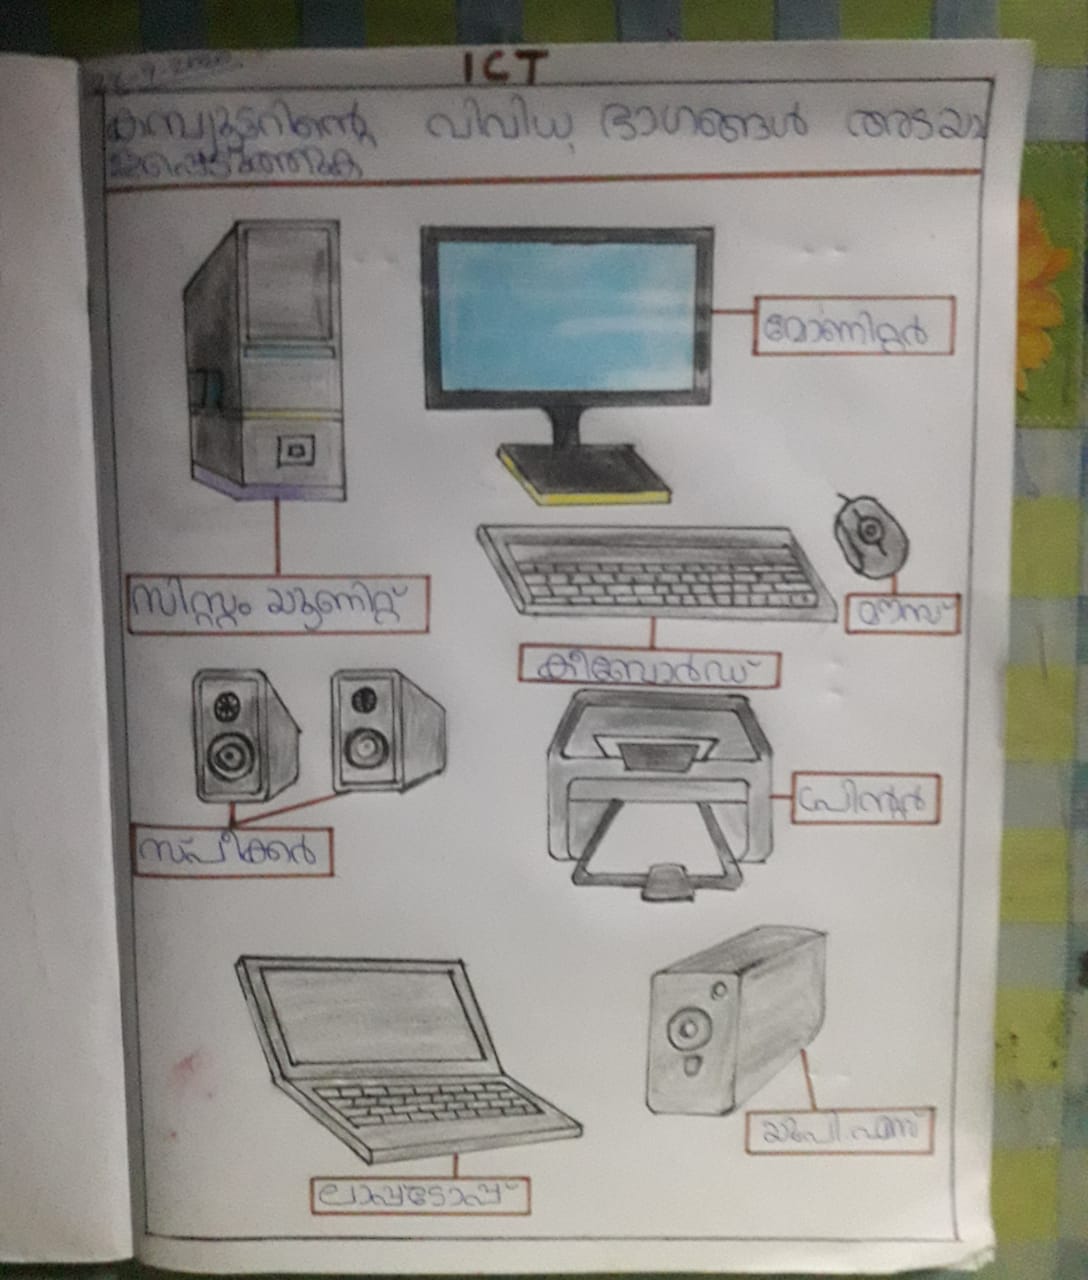 ICT
കമ്പ്യൂട്ടറിന്റെ വിവിധ ഭാഗങ്ങൾ അടയാ
ളപ്പെടുത്തുക
മോണിറ്റർ
സിസ്റ്റം യൂണിറ്റ്
മൗസ്
കീബോർഡ്
പ്രിന്റർ
സ്പീക്കർ
യു.പി.എസ്
ലാപ്ടോപ്പ്